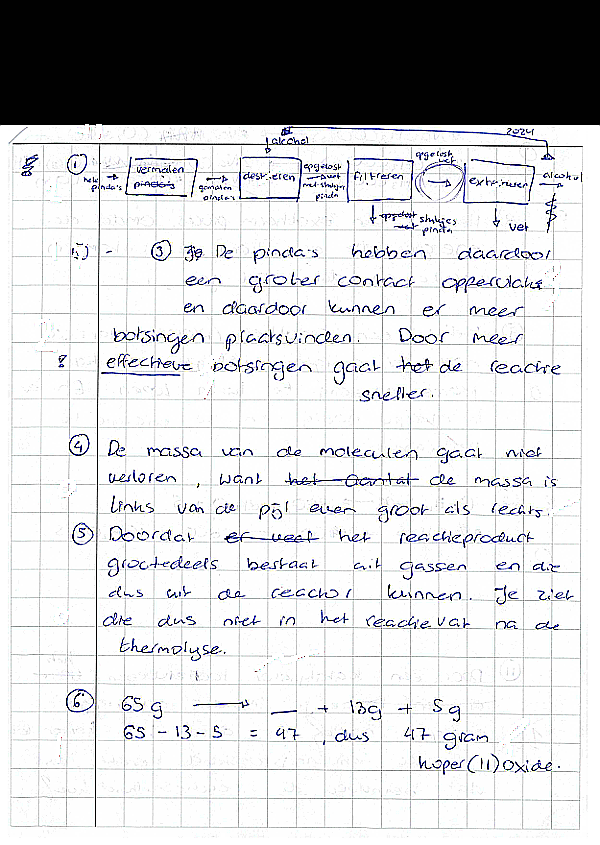 2024
alcohol
① hele pinda's → vermalen ~~pinda's~~ → gemalen pinda's → destileren → opgelost vet met stukjes pinda → filtreren → opgelost vet → extraheren → alcohol
stukjes pinda
vet
③ De pinda's hebben daardoor
een groter contact oppervlakte
en daardoor kunnen er meer
botsingen plaatsvinden. Door meer
effectieve botsingen gaat ~~het~~ de reactie
sneller.
④ De massa van de moleculen gaat niet
verloren, want ~~het aantal~~ de massa is
links van de pijl even groot als rechts.
⑤ Doordat ~~er veel~~ het reactieproduct
grootedeels bestaat uit gassen en die
dus uit de reactor kunnen. Je ziet
die dus niet in het reactievat na de
thermolyse.
⑥ 65 g → __ + 13g + 5 g
65 - 13 - 5 = 47, dus 47 gram
koper(II)oxide.